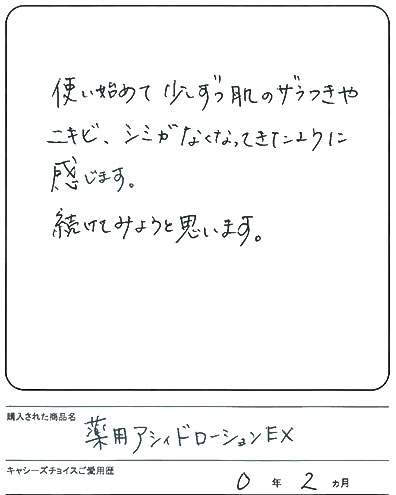 使い始めて少しずつ肌のザラつきや
ニキビ、シミがなくなってきたように
感じます。
続けてみようと思います。
購入された商品名
薬用アシィドローションEX
キャシーズチョイスご愛用歴
0 年 2 ヵ月